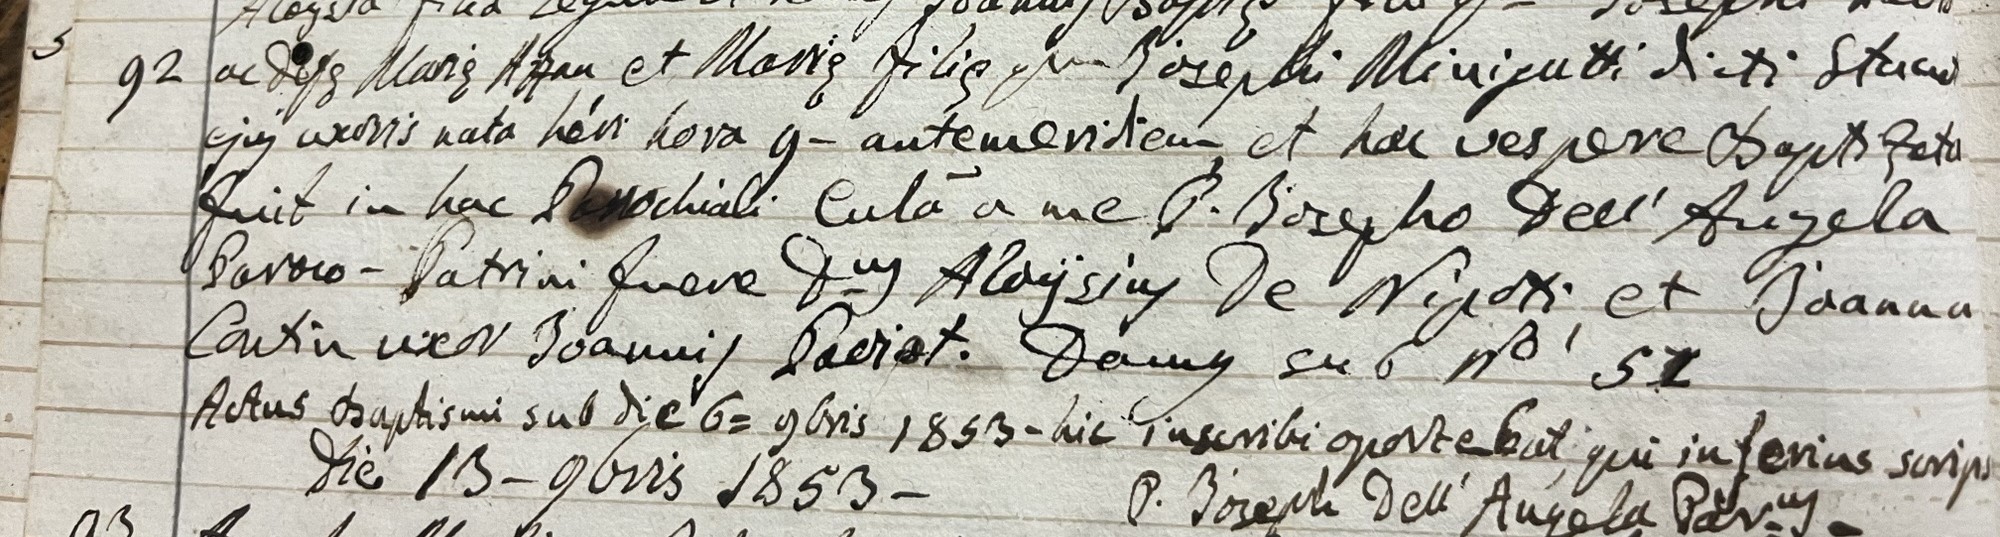 Aloysia filia Joannis Baptę filii qm Josephi
5
92 ac Marię Azzan et Marię filię qm Josephi Minigutti dicti
ejus uxoris nata héri hora 9- antemeridiem, et hac vespere Baptizata
fuit in hac Parochiali Eccla a me P. Josepho Dell' Angela
Paroco - Patrini fuere Dnus Aloÿsius De Nipoti et Joanna
Contin uxor Joannis Pacriot. Domus sub No 51
Actus Baptismi sub die 6= 9bris 1853- hic inscribi oportebat, qui inferius scrips
Die 13- 9bris 1853-
P. Joseph Dell' Angela Parus
93